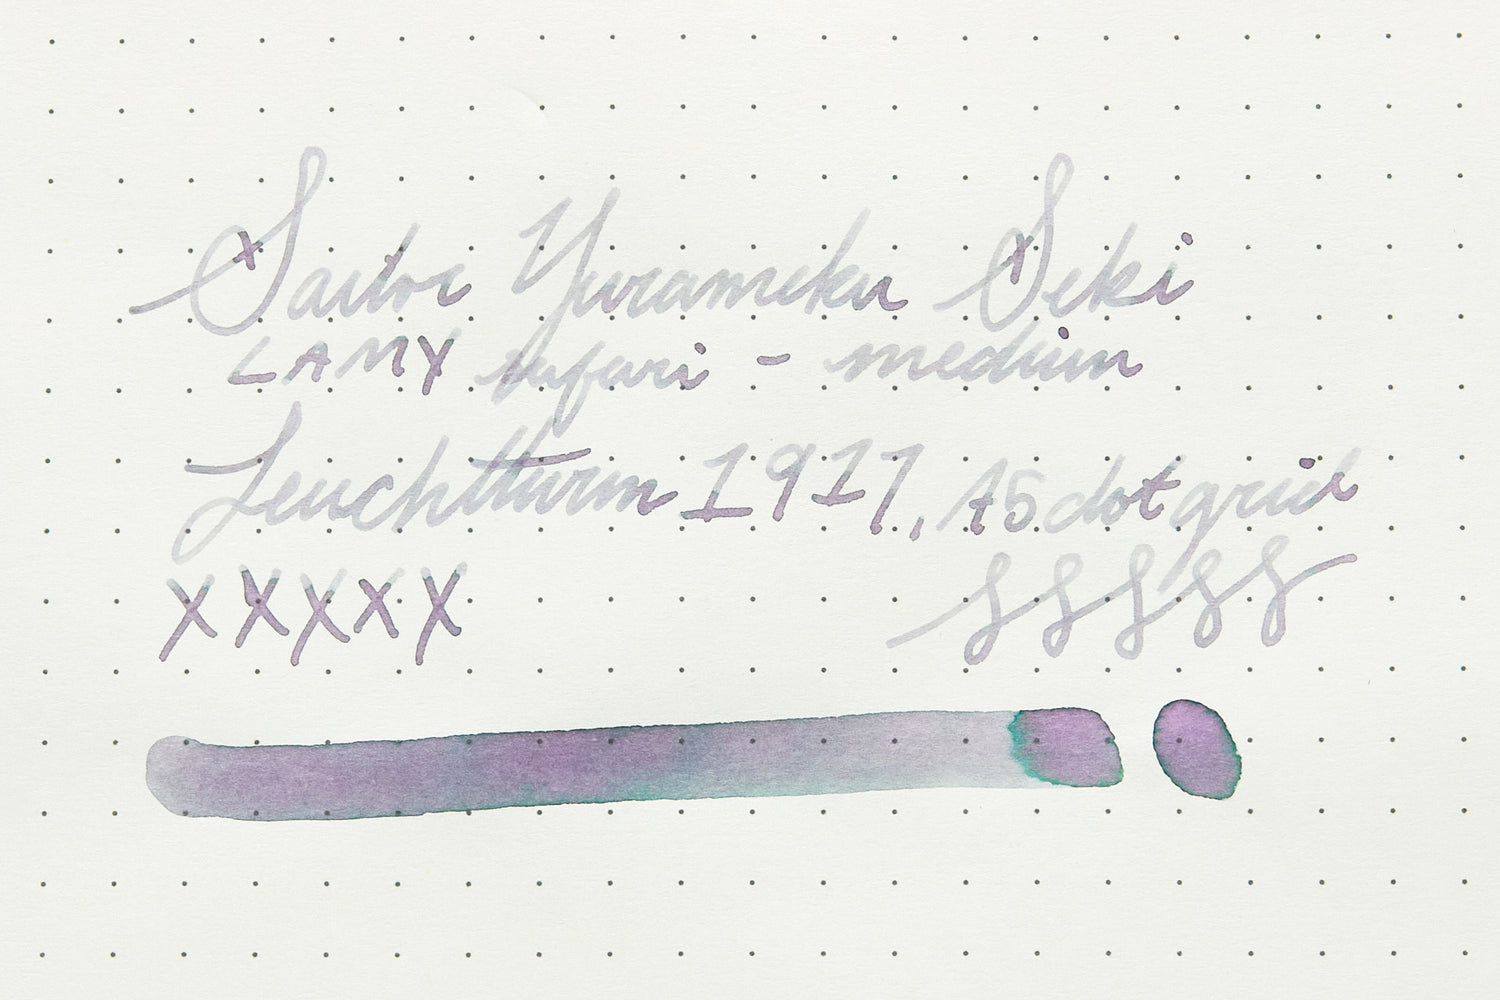 Sailor Yurameku Seki
LAMY safari - medium
Leuchtturm 1917, A5 dot grid
x x x x x